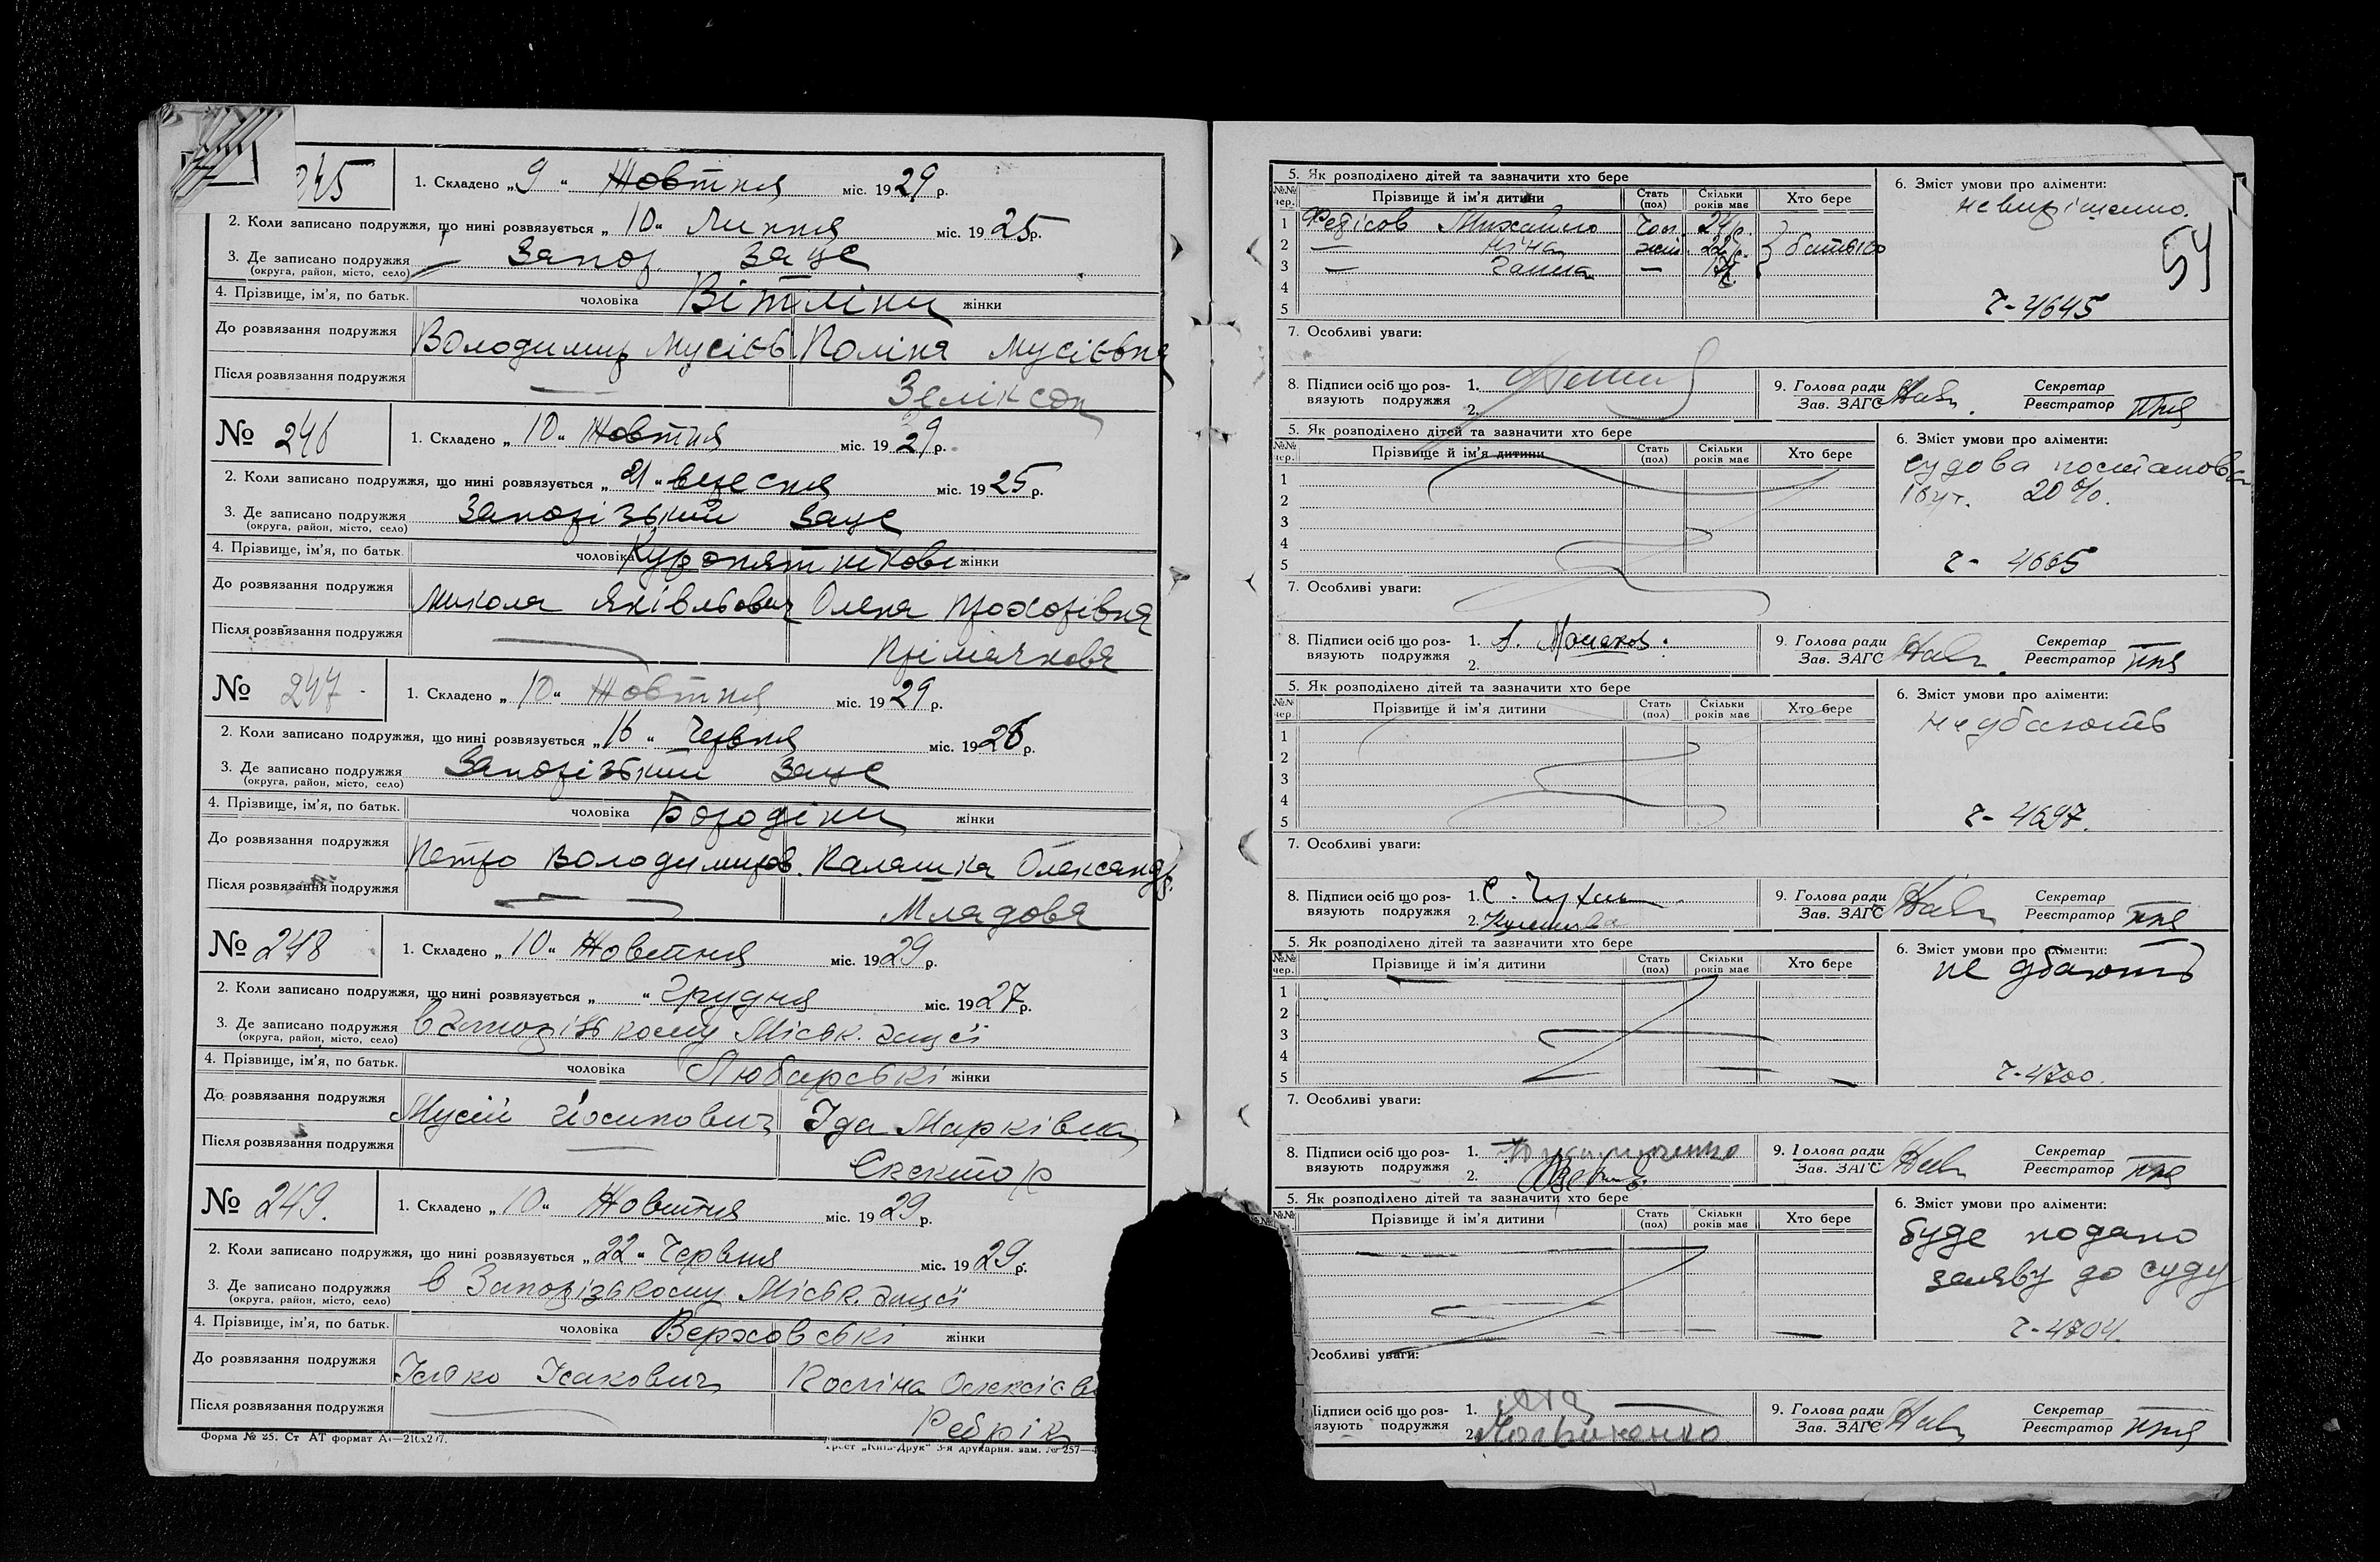 245
1. Складено „ 9 “ Жовтня міс. 1929 р.
2. Коли записано подружжя, що нині розвязується „ 10 “ Липня міс. 1925 р.
3. Де записано подружжя Запор. Загс
(округа, район, місто, село)
4. Прізвище, ім’я, по батьк. чоловіка Вітліни жінки
До розвязання подружжя Володимир Мусієв. Поліна Мусієвна
Після розвязання подружжя — Зеліксон
№ 246
1. Складено „ 10 “ Жовтня міс. 1929 р.
2. Коли записано подружжя, що нині розвязується „ 21 “ вересня міс. 1925 р.
3. Де записано подружжя Запорізький Загс
(округа, район, місто, село)
4. Прізвище, ім’я, по батьк. чоловіка Куропятнікови жінки
До розвязання подружжя Микола Яківльович Олена Прохорівна
Після розвязання подружжя — Прімачкова
№ 247
1. Складено „ 10 “ Жовтня міс. 1929 р.
2. Коли записано подружжя, що нині розвязується „ 16 “ Червня міс. 1926 р.
3. Де записано подружжя Запорізький Загс
(округа, район, місто, село)
4. Прізвище, ім’я, по батьк. чоловіка Бородіни жінки
До розвязання подружжя Петро Володимиров. Палашка Олександр.
Після розвязання подружжя — Младова
№ 248
1. Складено „ 10 “ Жовтня міс. 1929 р.
2. Коли записано подружжя, що нині розвязується „ “ Грудня міс. 1927 р.
3. Де записано подружжя в Запорізькому Міськ. Загсі
(округа, район, місто, село)
4. Прізвище, ім’я, по батьк. чоловіка Любарські жінки
До розвязання подружжя Мусій Йосипович Іда Марківна
Після розвязання подружжя — Екектор
№ 249.
1. Складено „ 10 “ Жовтня міс. 1929 р.
2. Коли записано подружжя, що нині розвязується „ 22 “ Червня міс. 1929 р.
3. Де записано подружжя в Запорізькому Міськ. Загсі
(округа, район, місто, село)
4. Прізвище, ім’я, по батьк. чоловіка Верховські жінки
До розвязання подружжя Ісаковича
Після розвязання подружжя — Ребрік
Форма № 25. Ст АТ формат А
Трест „Київ-Друк“ 3-я друкарня. зам. № 257
5. Як розподілено дітей та зазначити хто бере
№№ чер. Прізвище й ім’я дитини Стать (пол) Скільки років має Хто бере
1 Фетісов Михайло Чол. 24р.
2 — Ніна жін. 22р. батько
3 — Ганна —
4
5
6. Зміст умови про аліменти:
невирішенно.
54
г-4645
7. Особливі уваги:
8. Підписи осіб що роз- 1.
вязують подружжя 2.
9. Голова ради Секретар
Зав. ЗАГС Реєстратор
5. Як розподілено дітей та зазначити хто бере
№№ чер. Прізвище й ім’я дитини Стать (пол) Скільки років має Хто бере
1
2
3
4
5
6. Зміст умови про аліменти:
судова постанова
20%.
г- 4665
7. Особливі уваги:
8. Підписи осіб що роз- 1.
вязують подружжя 2.
9. Голова ради Секретар
Зав. ЗАГС Реєстратор
5. Як розподілено дітей та зазначити хто бере
№№ чер. Прізвище й ім’я дитини Стать (пол) Скільки років має Хто бере
1
2
3
4
5
6. Зміст умови про аліменти:
не дбають
г- 4697.
7. Особливі уваги:
8. Підписи осіб що роз- 1.
вязують подружжя 2.
9. Голова ради Секретар
Зав. ЗАГС Реєстратор
5. Як розподілено дітей та зазначити хто бере
№№ чер. Прізвище й ім’я дитини Стать (пол) Скільки років має Хто бере
1
2
3
4
5
6. Зміст умови про аліменти:
не дбають
г-4700.
7. Особливі уваги:
8. Підписи осіб що роз- 1.
вязують подружжя 2.
9. Голова ради Секретар
Зав. ЗАГС Реєстратор
5. Як розподілено дітей та зазначити хто бере
№№ Прізвище й ім’я дитини Стать (пол) Скільки років має Хто бере
6. Зміст умови про аліменти:
буде подано
заяву до суду
г-4704.
Особливі уваги:
Підписи осіб що роз- 1.
язують подружжя 2.
9. Голова ради Секретар
Зав. ЗАГС Реєстратор